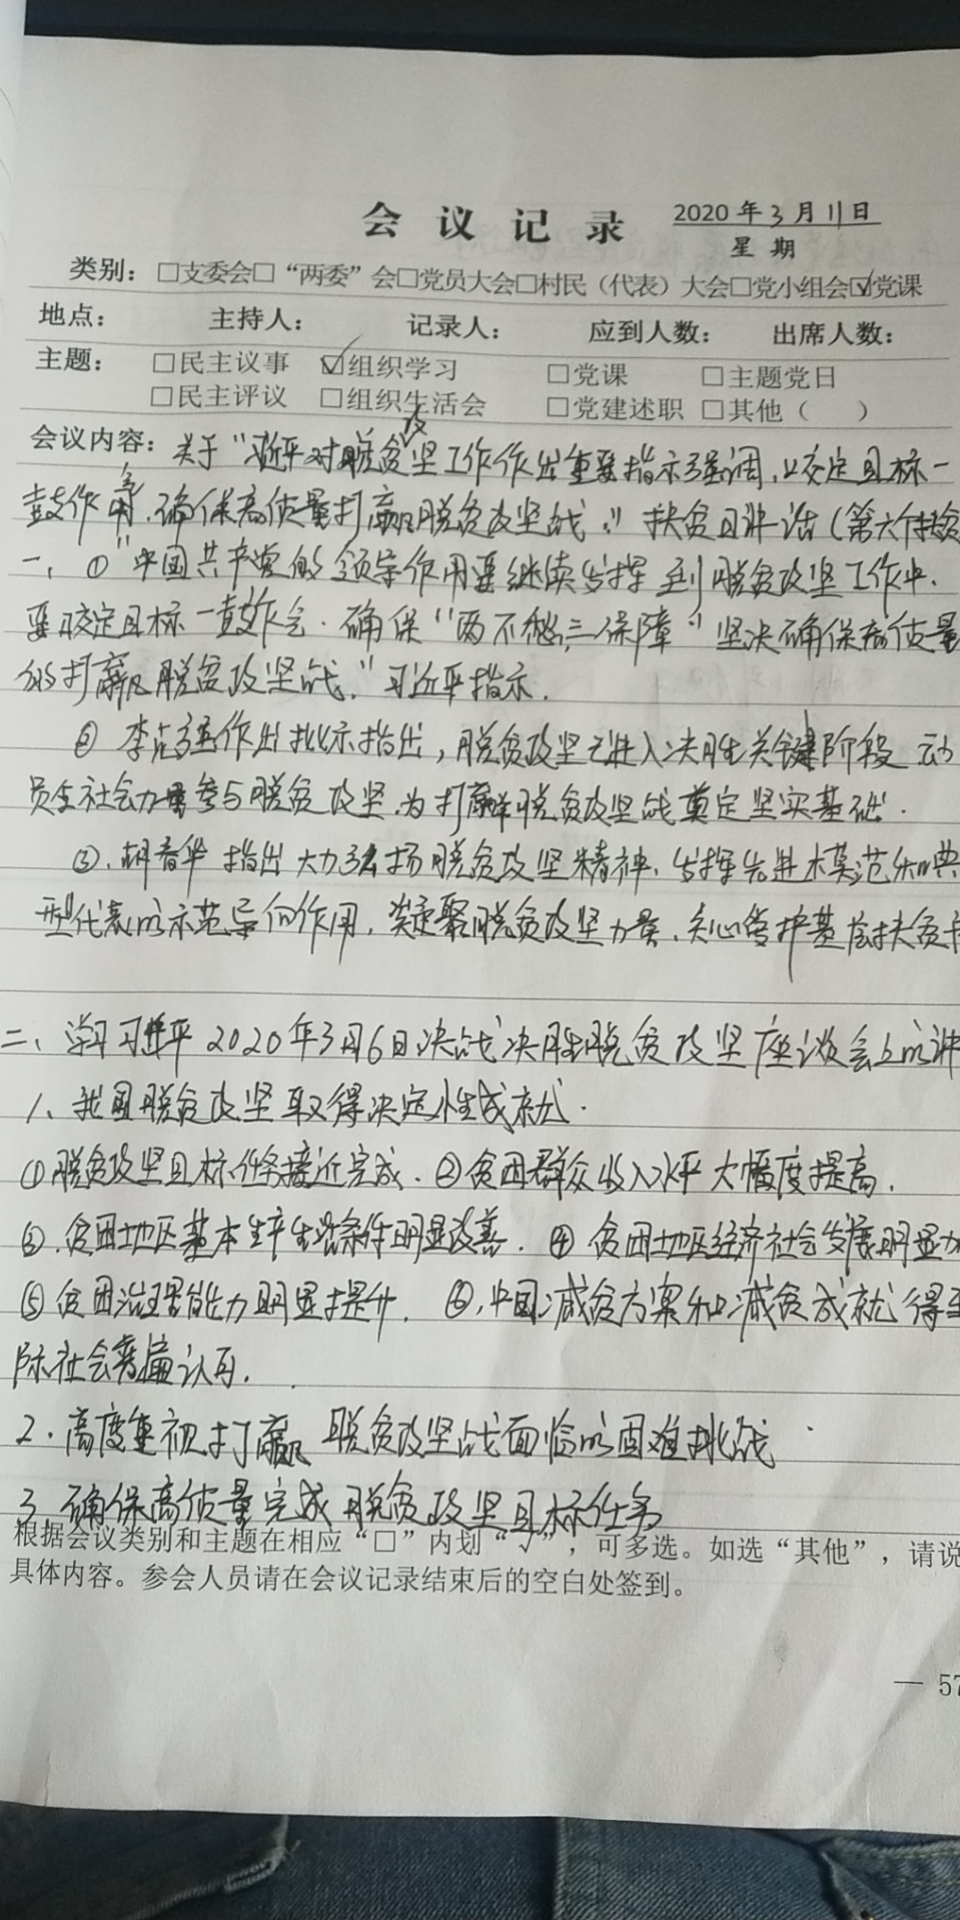 会议记录 2020年3月11日
星期
类别：□支委会□“两委”会□党员大会□村民（代表）大会□党小组会☑党课
地点： 主持人： 记录人： 应到人数： 出席人数：
主题： □民主议事 ☑组织学习 □党课 □主题党日
□民主评议 □组织生活会 □党建述职 □其他（ ）
会议内容：关于“习近平对脱贫攻坚工作作出重要指示强调,咬定目标一
鼓作气,确保高质量打赢脱贫攻坚战.” 扶贫日讲话(第六个扶贫
一、①“中国共产党的领导作用要继续发挥到脱贫攻坚工作中.
要咬定目标一鼓作气.确保“两不愁,三保障”坚决确保高质量
的打赢脱贫攻坚战.”习近平指示.
② 李克强作出批示指出,脱贫攻坚已进入决胜关键阶段 动
员全社会力量参与脱贫攻坚.为打赢脱贫攻坚战奠定坚实基础.
③.胡春华指出大力弘扬脱贫攻坚精神.发挥先进模范和典
型代表的示范导向作用,凝聚脱贫攻坚力量.关心爱护基层扶贫干
二、学习习近平2020年3月6日决战决胜脱贫攻坚座谈会上的讲
1、我国脱贫攻坚取得决定性成就.
①脱贫攻坚目标任务接近完成.②贫困群众收入水平大幅度提高.
③.贫困地区基本生产生活条件明显改善. ④ 贫困地区经济社会发展明显加
⑤贫困治理能力明显提升. ⑥.中国减贫方案和减贫成就得到
际社会普遍认可.
2.高度重视打赢脱贫攻坚战面临的困难挑战
3.确保高质量完成脱贫攻坚目标任务
根据会议类别和主题在相应“□”内划“√”，可多选。如选“其他”，请说
具体内容。参会人员请在会议记录结束后的空白处签到。
— 57